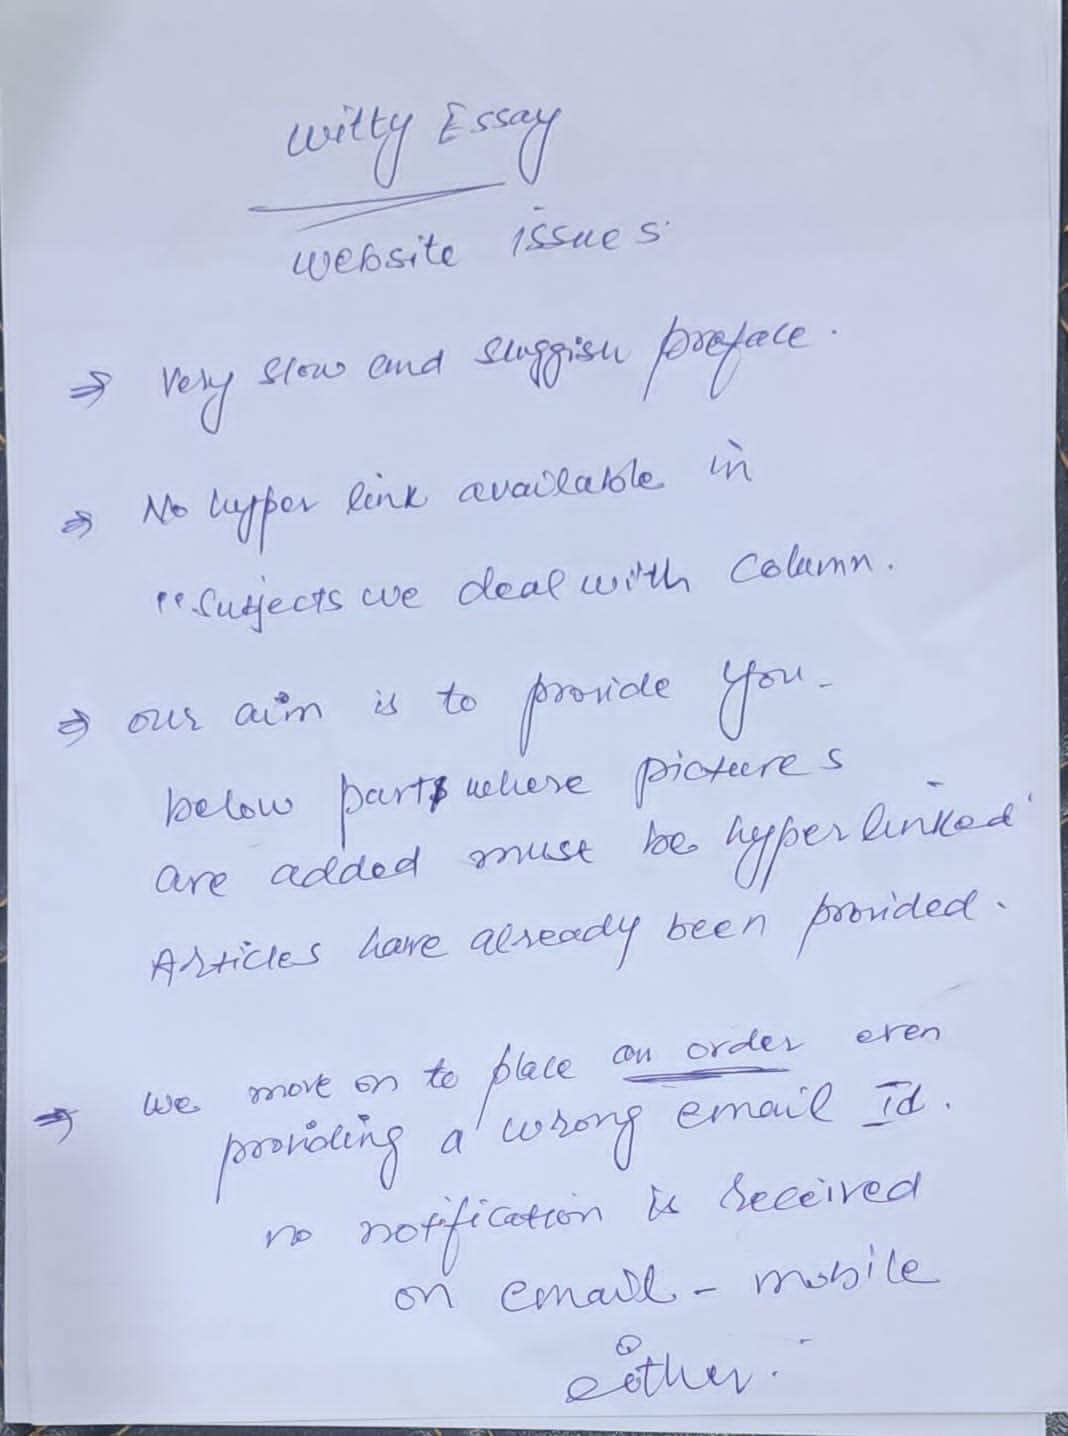 Witty Essay
website issues
⇒ Very slow and sluggish preface.
⇒ No hyper link available in
"Subjects we deal with column.
⇒ our aim is to provide you -
below parts where pictures
are added must be hyperlinked
Articles have already been provided.
⇒ we move on to place an order even
providing a wrong email Id.
no notification is received
on email - mobile
either.